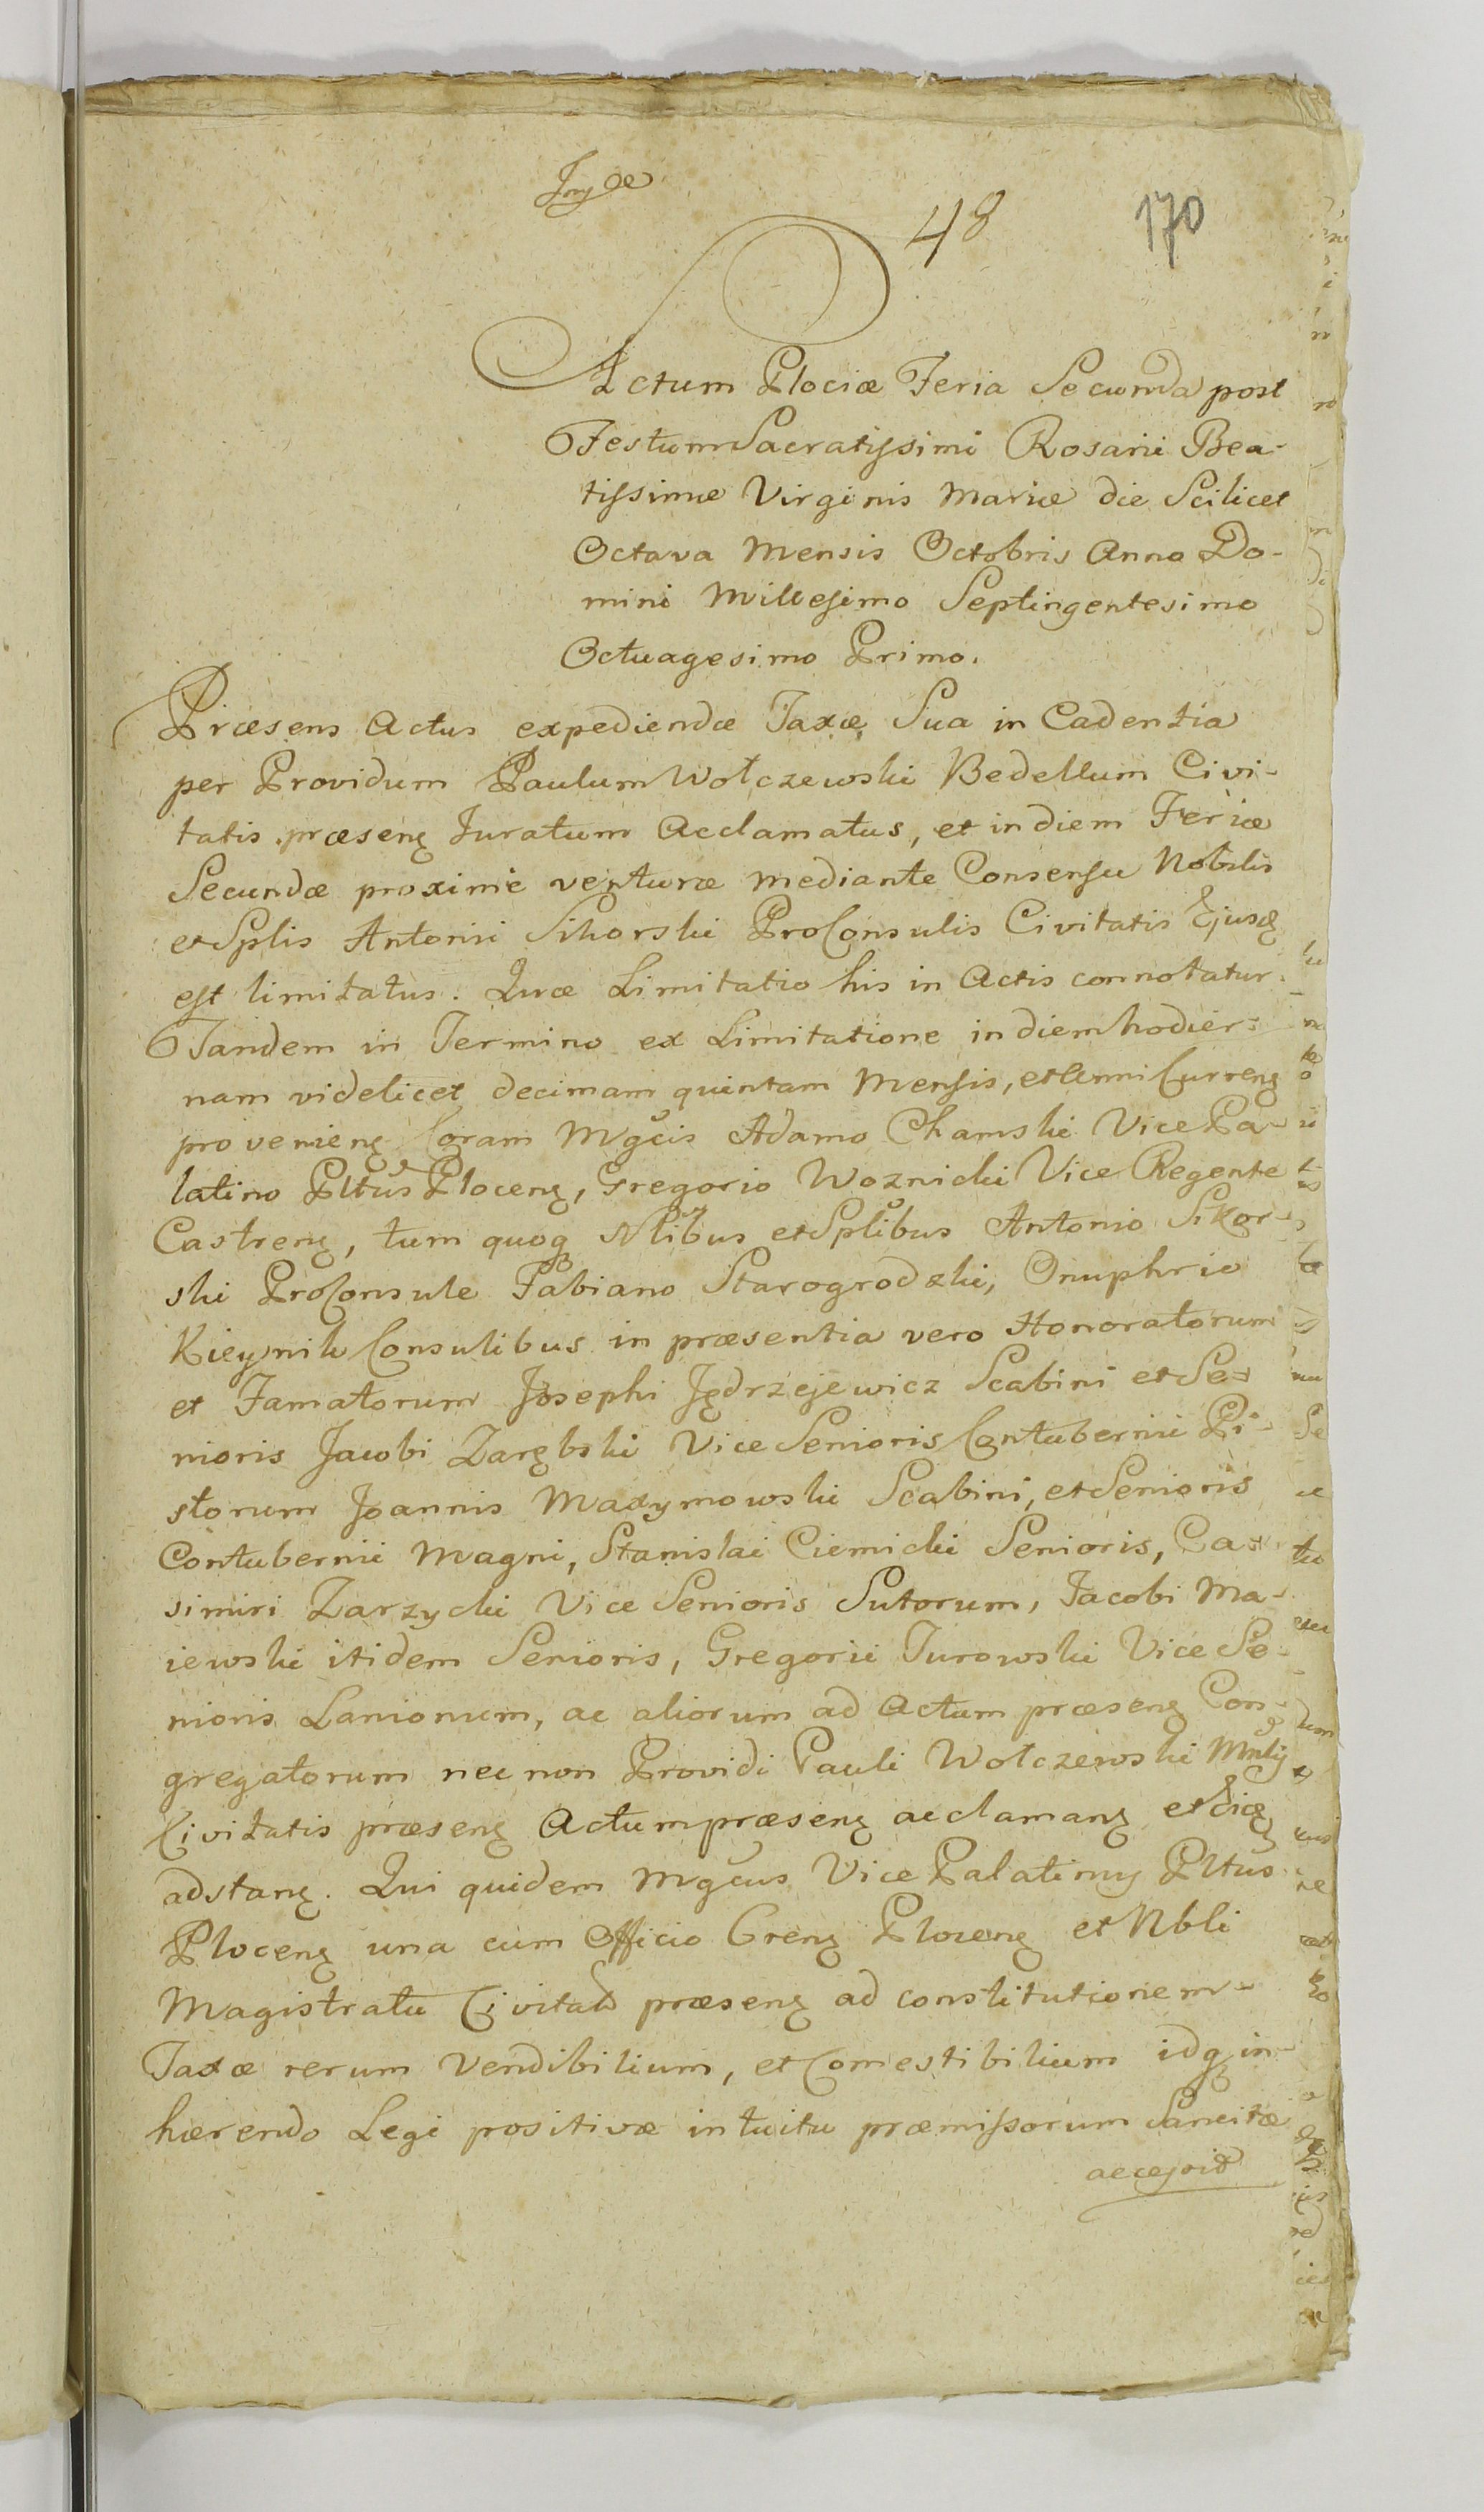 48
170
Actum Plociæ Feria Secunda post
Festum Sacratissimi Rosarii Bea-
tissimæ Virginis Mariæ die Scilicet
Octava Mensis Octobris Anno Do-
mini Millesimo Septingentesimo
Octuagesimo Primo.
Præsens Actus expediendæ Taxæ, Sua in Cadentia
per Providum Paulum Wołczewski Bedellum Civi-
tatis præsenę Juratum Acclamatus, et in diem Feriæ
Secundæ proxime venturæ mediante Consensu Nobilis
et Splis Antonii Sikorski ProConsulis Civitatis Ejusđ
est limitatus. Quæ Limitatio his in Actis connotatur.
Tandem in Termino ex Limitatione in diem hodier-
nam videlicet decimam quintam Mensis, et Anni Currenę
provenienę Coram Mgcis Adamo Chamski Vice Pa-
latino Pltus Plocenę, Gregorio Woznicki Vice Regente
Castrenę, tum quoq Nlibus et Splibus Antonio Sikor-
ski ProConsule Fabiano Starogrodzki, Onuphrio
Kieynik Consulibus in præsentia vero Honoratorum
et Famatorum Josephi Jędrzejewicz Scabini et Se-
nioris Jacobi Zarębski Vice Senioris Contubernii Pi-
storum Joannis Maxymowski Scabini, et Senioris
Contubernii Magni, Stanislai Ciemicki Senioris, Ca-
simiri Zarzycki Vice Senioris Sutorum, Jacobi Ma-
iewski itidem Senioris, Gregorii Turowski Vice Se-
nioris Lanionum, ac aliorum ad Actum præsenę Con-
gregatorum nec non Providi Pauli Wołczewski Mnlij
Civitatis præsenę Actum præsenę acclamanę et
adstanę. Qui quidem Mgcus Vice Palatinus Pltus
Plocenę una cum Officio Crenę Plocenę et Nbli
Magistratu Civitatis præsenę ad constitutionem
Taxæ rerum Vendibilium, et Comestibilium idq in-
hærendo Legi positivæ intuitu præmissorum Sancitæ